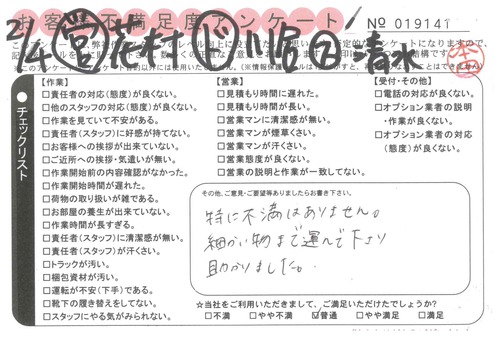 お客様不満足度アンケート
No 019141
2/1
営 花村 ド 小沼 2 清水
本
チェックリスト
【作業】
□責任者の対応(態度)が良くない。
□他のスタッフの対応(態度)が良くない。
□作業を見ていて不安がある。
□責任者(スタッフ)に好感が持てない。
□お客様への挨拶が出来ていない。
□ご近所への挨拶・気遣いが無い。
□作業開始前の内容確認がなかった。
□作業開始時間が遅れた。
□荷物の取り扱いが雑である。
□お部屋の養生が出来ていない。
□作業時間が長すぎる。
□責任者(スタッフ)に清潔感が無い。
□責任者(スタッフ)が汗くさい。
□トラックが汚い。
□梱包資材が汚い。
□運転が不安(下手)である。
□靴下の履き替えをしてない。
□スタッフにやる気がみられない。
【営業】
□見積もり時間に遅れた。
□見積もり時間が長い。
□営業マンに清潔感が無い。
□営業マンが煙草くさい。
□営業マンが汗くさい。
□営業態度が良くない。
□営業の説明と作業が一致してない。
【受付・その他】
□電話の対応が良くない。
□オプション業者の説明
・作業が良くない。
□オプション業者の対応
(態度)が良くない。
その他、ご意見・ご要望等ありましたらお書き下さい。
特に不満はありません。
細かい物まで運んで下さり
助かりました。
☆当社をご利用いただきまして、ご満足いただけたでしょうか?
□不満 □やや不満 ☑普通 □やや満足 □満足